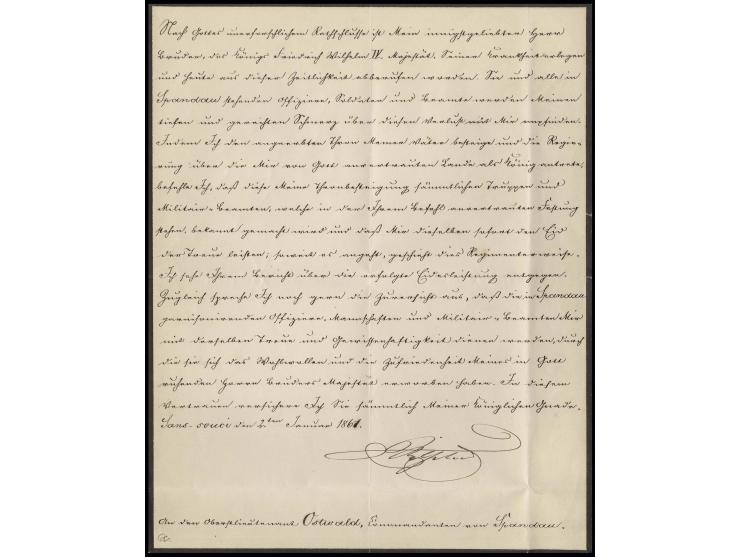 Nach Gottes unerforschlichem Rathschlusse ist Mein innigstgeliebter Herr
Bruder, des Königs Friedrich Wilhelm IV. Majestät, Seiner Krankheit erlegen
und heute aus dieser Zeitlichkeit abberufen worden. Sie und alle in
Spandau stehenden Offiziere, Soldaten und Beamte werden Meinen
tiefen und gerechten Schmerz über diesen Verlust mit Mir empfinden.
Indem Ich den angeerbten Thron Meiner Väter besteige und die Regie-
rung über die Mir von Gott anvertrauten Lande als König antrete,
befehle Ich, daß diese Meine Thronbesteigung sämmtlichen Truppen und
Militair-Beamten, welche in der Ihrem Befehl anvertrauten Festung
stehen, bekannt gemacht wird und daß Mir dieselben sofort den Eid
der Treue leisten; soweit es angeht, geschieht dies Regimenterweise.
Ich sehe Ihrem Bericht über die erfolgte Eidesleistung entgegen.
Zugleich spreche Ich noch gern die Zuversicht aus, daß die in Spandau
garnisonirenden Offiziere, Mannschaften und Militair-Beamten Mir
mit derselben Treue und Gewissenhaftigkeit dienen werden, durch
die sie sich das Wohlwollen und die Zufriedenheit Meines in Gott
ruhenden Herrn Bruders Majestät erworben haben. In diesem
Vertrauen versichere Ich Sie sämmtlich Meiner Königlichen Gnade.
Sans-souci den 2ten Januar 1861.
Wilhelm
An den Oberstlieutenant Ostwald, Commandanten von Spandau.